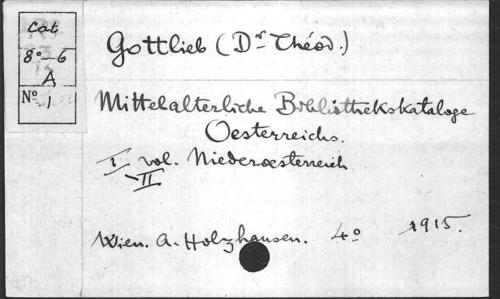 Cat
8º–6
A
Nº 1
Gottlieb (Dr Théod.)
Mittelalterliche Bibliothekskataloge
Oesterreichs.
I vol. Niederoesterreich
–II
Wien. A. Holzhausen. 4º 1915.